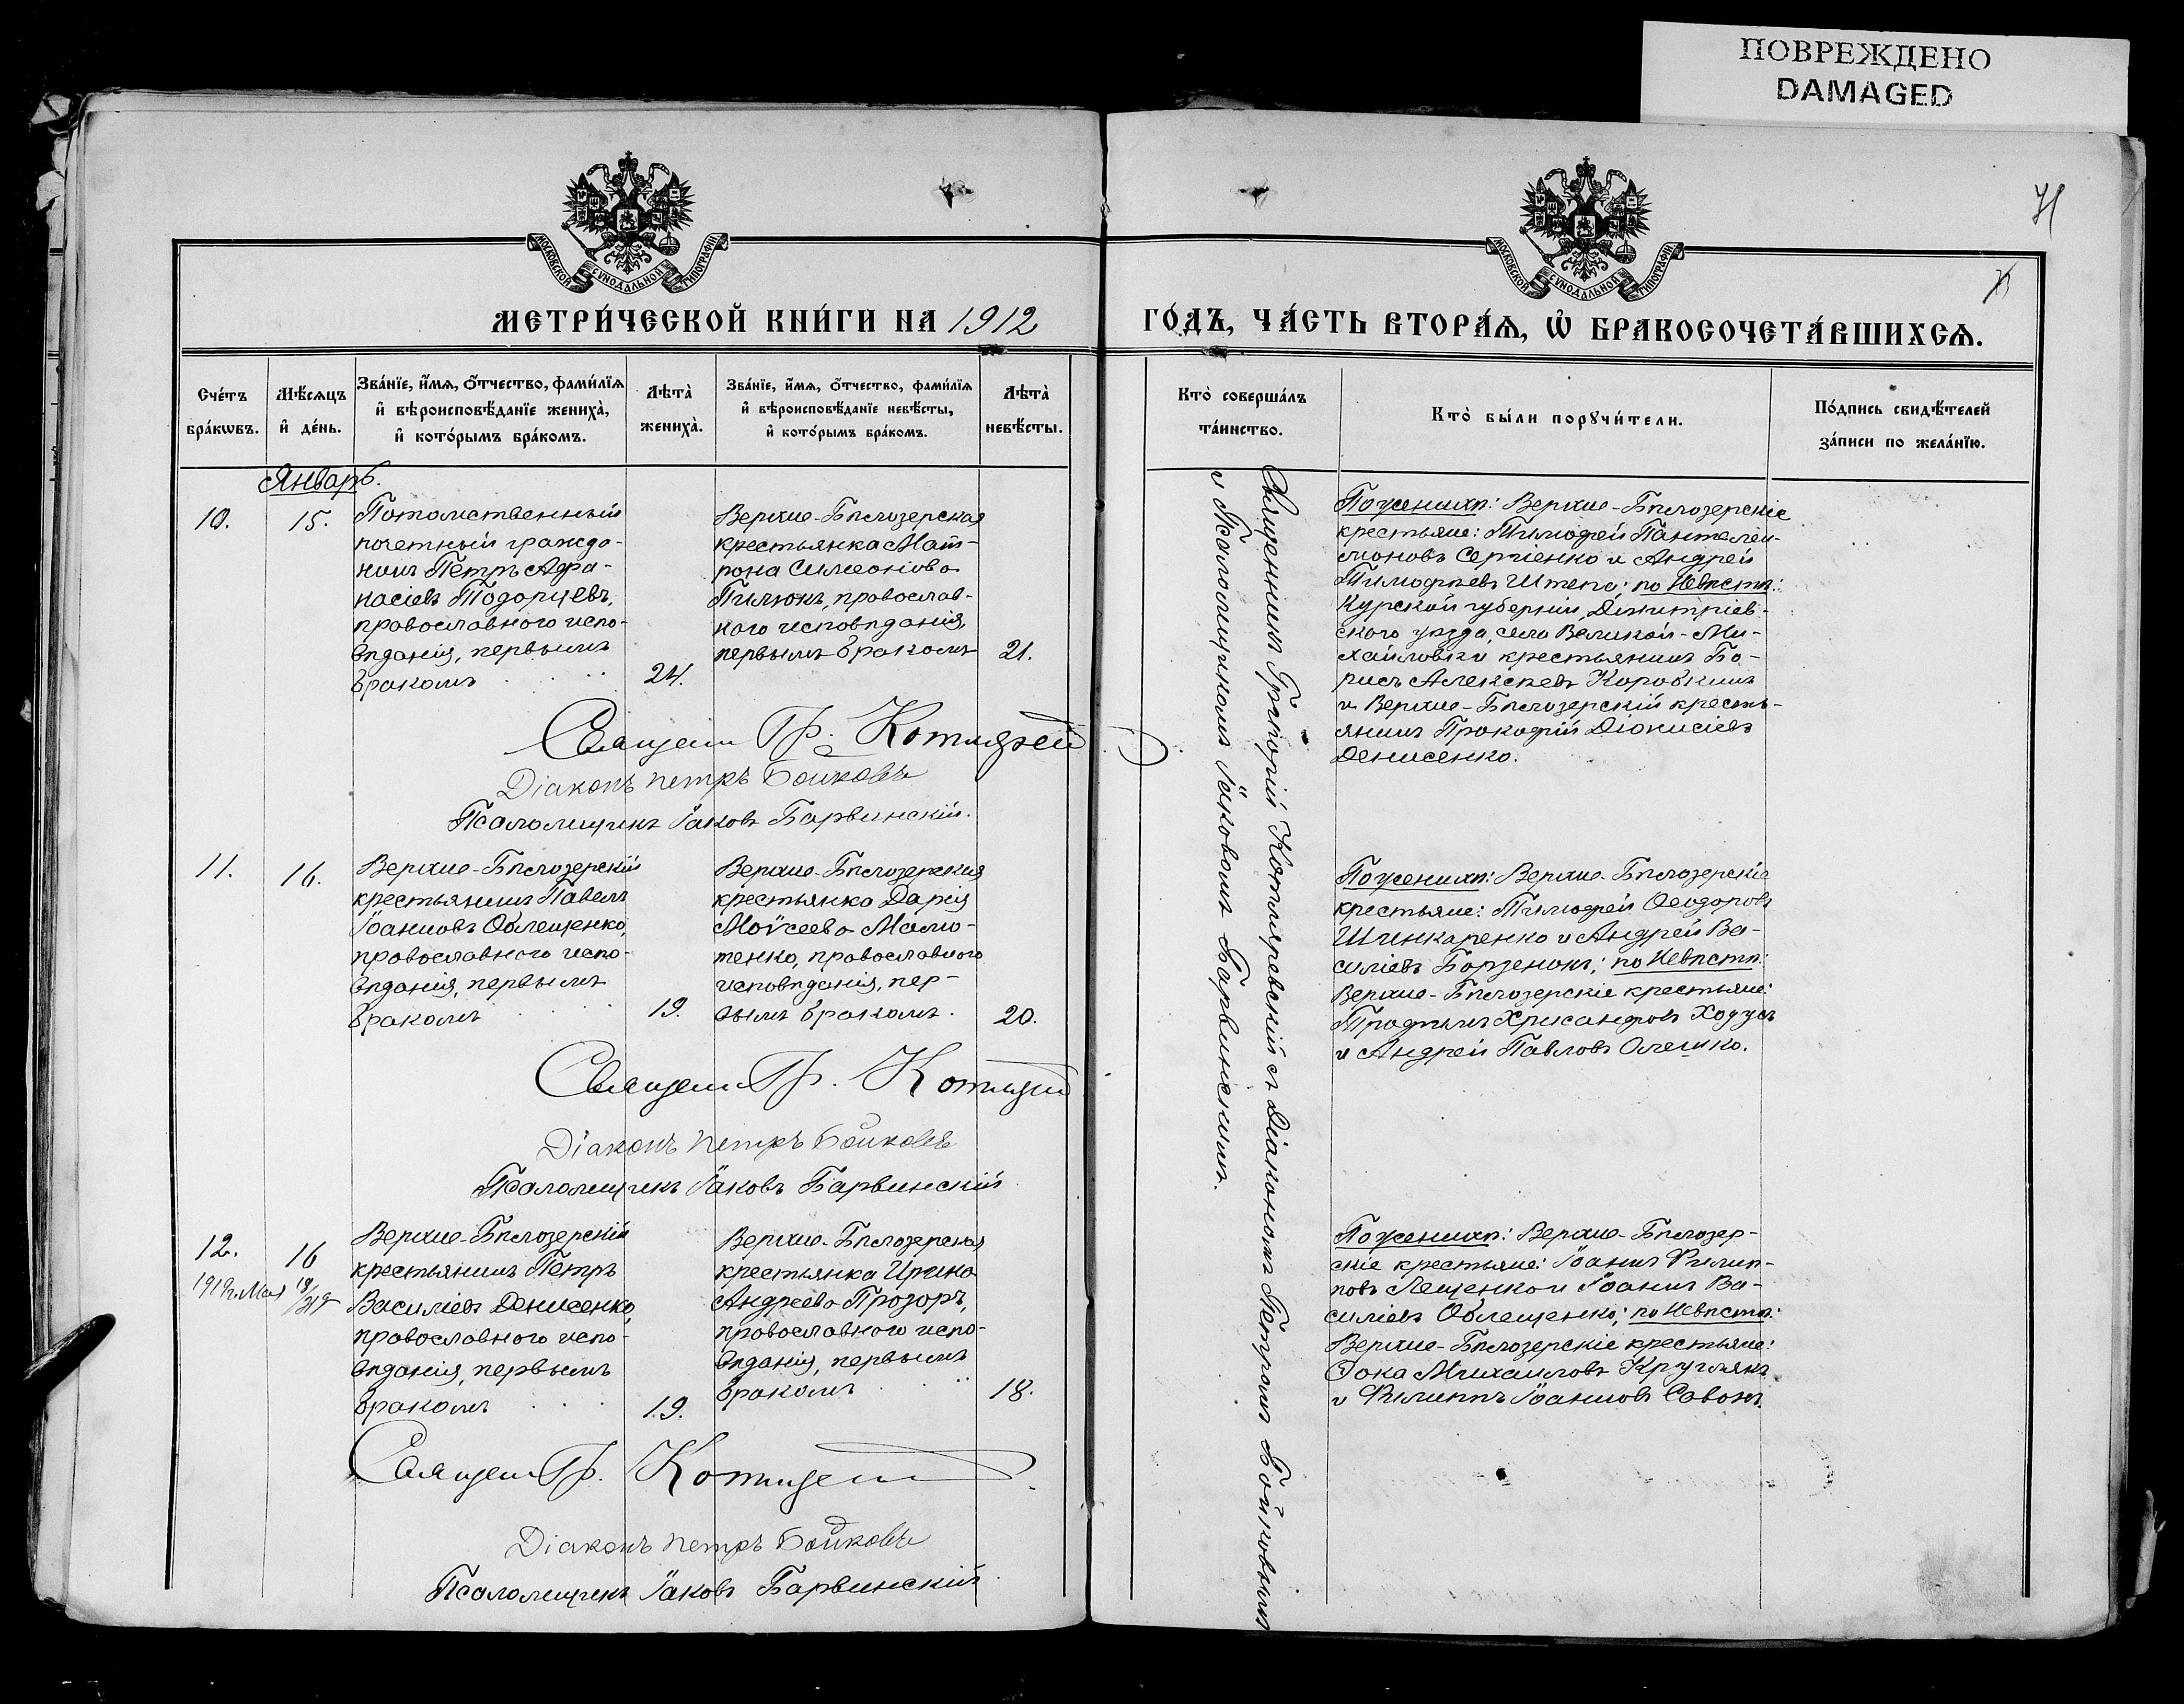 ПОВРЕЖДЕНО
DAMAGED
71
МОСКОВСКОЙ СѴНОДАЛЬНОЙ ТИПОГРАФІИ
МОСКОВСКОЙ СѴНОДАЛЬНОЙ ТИПОГРАФІИ
МЕТРИ́ЧЕСКОЙ КНИ́ГИ НА 1912
ГО́ДЪ, ЧА́СТЬ ВТОРА́Ѧ, Ѡ БРАКОСОЧЕТА́ВШИХСѦ.
Сче́тъ
бра́кѡвъ.
Мѣ́сяцъ
и҆ де́нь.
Зва́нїе, и҆́мѧ, ѻ҆́тчество, фами́лїѧ
и҆ вѣроисповѣ́данїе жениха̀,
и҆ кото́рымъ бра́комъ.
Лѣта̀
жениха̀.
Зва́нїе, и҆́мѧ, ѻ҆́тчество, фами́лїѧ
и҆ вѣроисповѣ́данїе невѣ́сты,
и҆ кото́рымъ бра́комъ.
Лѣта̀
невѣ́сты.
Кто̀ соверша́лъ
та́инство.
Кто̀ бы́ли порꙋчи́тели.
По́дпись свидѣ́телей
за́писи по жела́нїю.
Январь.
10.
15.
Потомственный
почетный гражда-
нинъ Петръ Афа-
насіевъ Тодорцевъ,
православнаго испо-
вѣданія, первымъ
бракомъ
24.
Верхне-Бѣлозерская
крестьянка Мат-
рона Симеонова
Пилюкъ, православ-
наго исповѣданія,
первымъ бракомъ
21.
По женихѣ: Верхне-Бѣлозерскіе
крестьяне: Тимофей Пантелеи-
моновъ Сергіенко и Андрей
Тимофѣевъ Штепа; по невѣстѣ:
Курской губерніи, Димитріев-
скаго уѣзда, села Великой-Ми-
хайловки крестьянинъ Бо-
рисъ Алексѣевъ Коробкинъ
и Верхне-Бѣлозерскій кресть-
янинъ Прокофій Діонисіевъ
Денисенко.
Священн Гр. Котляр
Діаконъ Петръ Бойковъ
Псаломщикъ Іаковъ Барвинскій.
Священникъ Григорій Котляревскій съ Діакономъ Петромъ Бойковымъ
и Псаломщикомъ Іаковомъ Барвинскимъ.
11.
16.
Верхне-Бѣлозерскій
крестьянинъ Павелъ
Іоанновъ Облещенко,
православнаго испо-
вѣданія, первымъ
бракомъ
19.
Верхне-Бѣлозерская
крестьянка Дарія
Моѵсеева Малю-
тенко, православнаго
исповѣданія, пер-
вымъ бракомъ.
20.
По женихѣ: Верхне-Бѣлозерскіе
крестьяне: Тимофей Ѳеодоровъ
Шинкаренко и Андрей Ва-
силіевъ Борзенокъ; по невѣстѣ:
Верхне-Бѣлозерскіе крестьяне:
Трофимъ Хрисанфовъ Ходусъ
и Андрей Павловъ Олешко.
Священн Гр. Котляр
Діаконъ Петръ Бойковъ
Псаломщикъ Іаковъ Барвинскій
12.
16
Верхне-Бѣлозерскій
крестьянинъ Петръ
Василіевъ Денисенко,
православнаго испо-
вѣданія, первымъ
бракомъ
19.
Верхне-Бѣлозерская
крестьянка Ирина
Андреева Прозоръ,
православнаго испо-
вѣданія, первымъ
бракомъ
18.
По женихѣ: Верхне-Бѣлозер-
скіе крестьяне: Іоаннъ Филип-
повъ Лещенко и Іоаннъ Ва-
силіевъ Облещенко; по невѣстѣ:
Верхне-Бѣлозерскіе крестьяне:
Ѳока Михаиловъ Круглякъ
и Филиппъ Іоанновъ Савонъ.
Священ Гр. Котляр
Діаконъ Петръ Бойковъ
Псаломщикъ Іаковъ Барвинскій